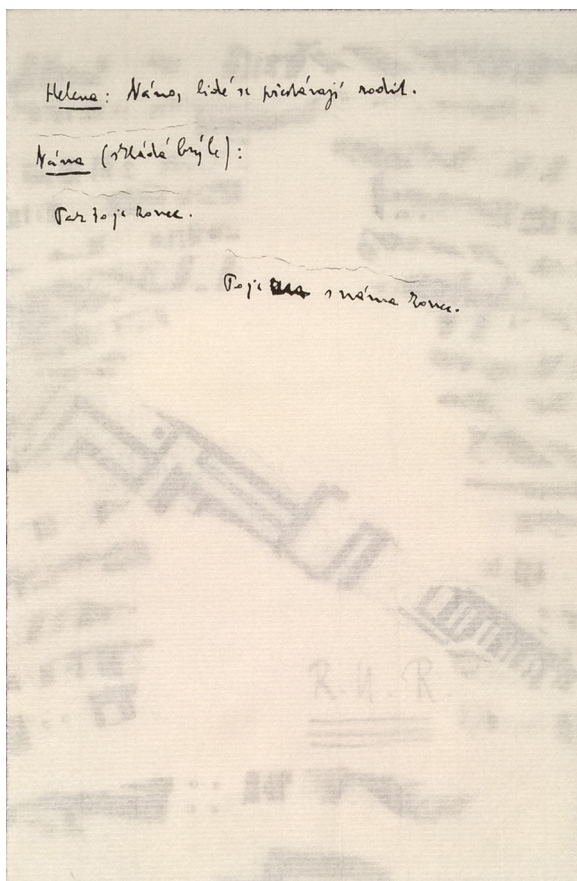 Helena: Náno, lidé se přestávají rodit.
Nána (skládá brýle):
Tak to je konec.
To je s náma konec.
R.U.R.